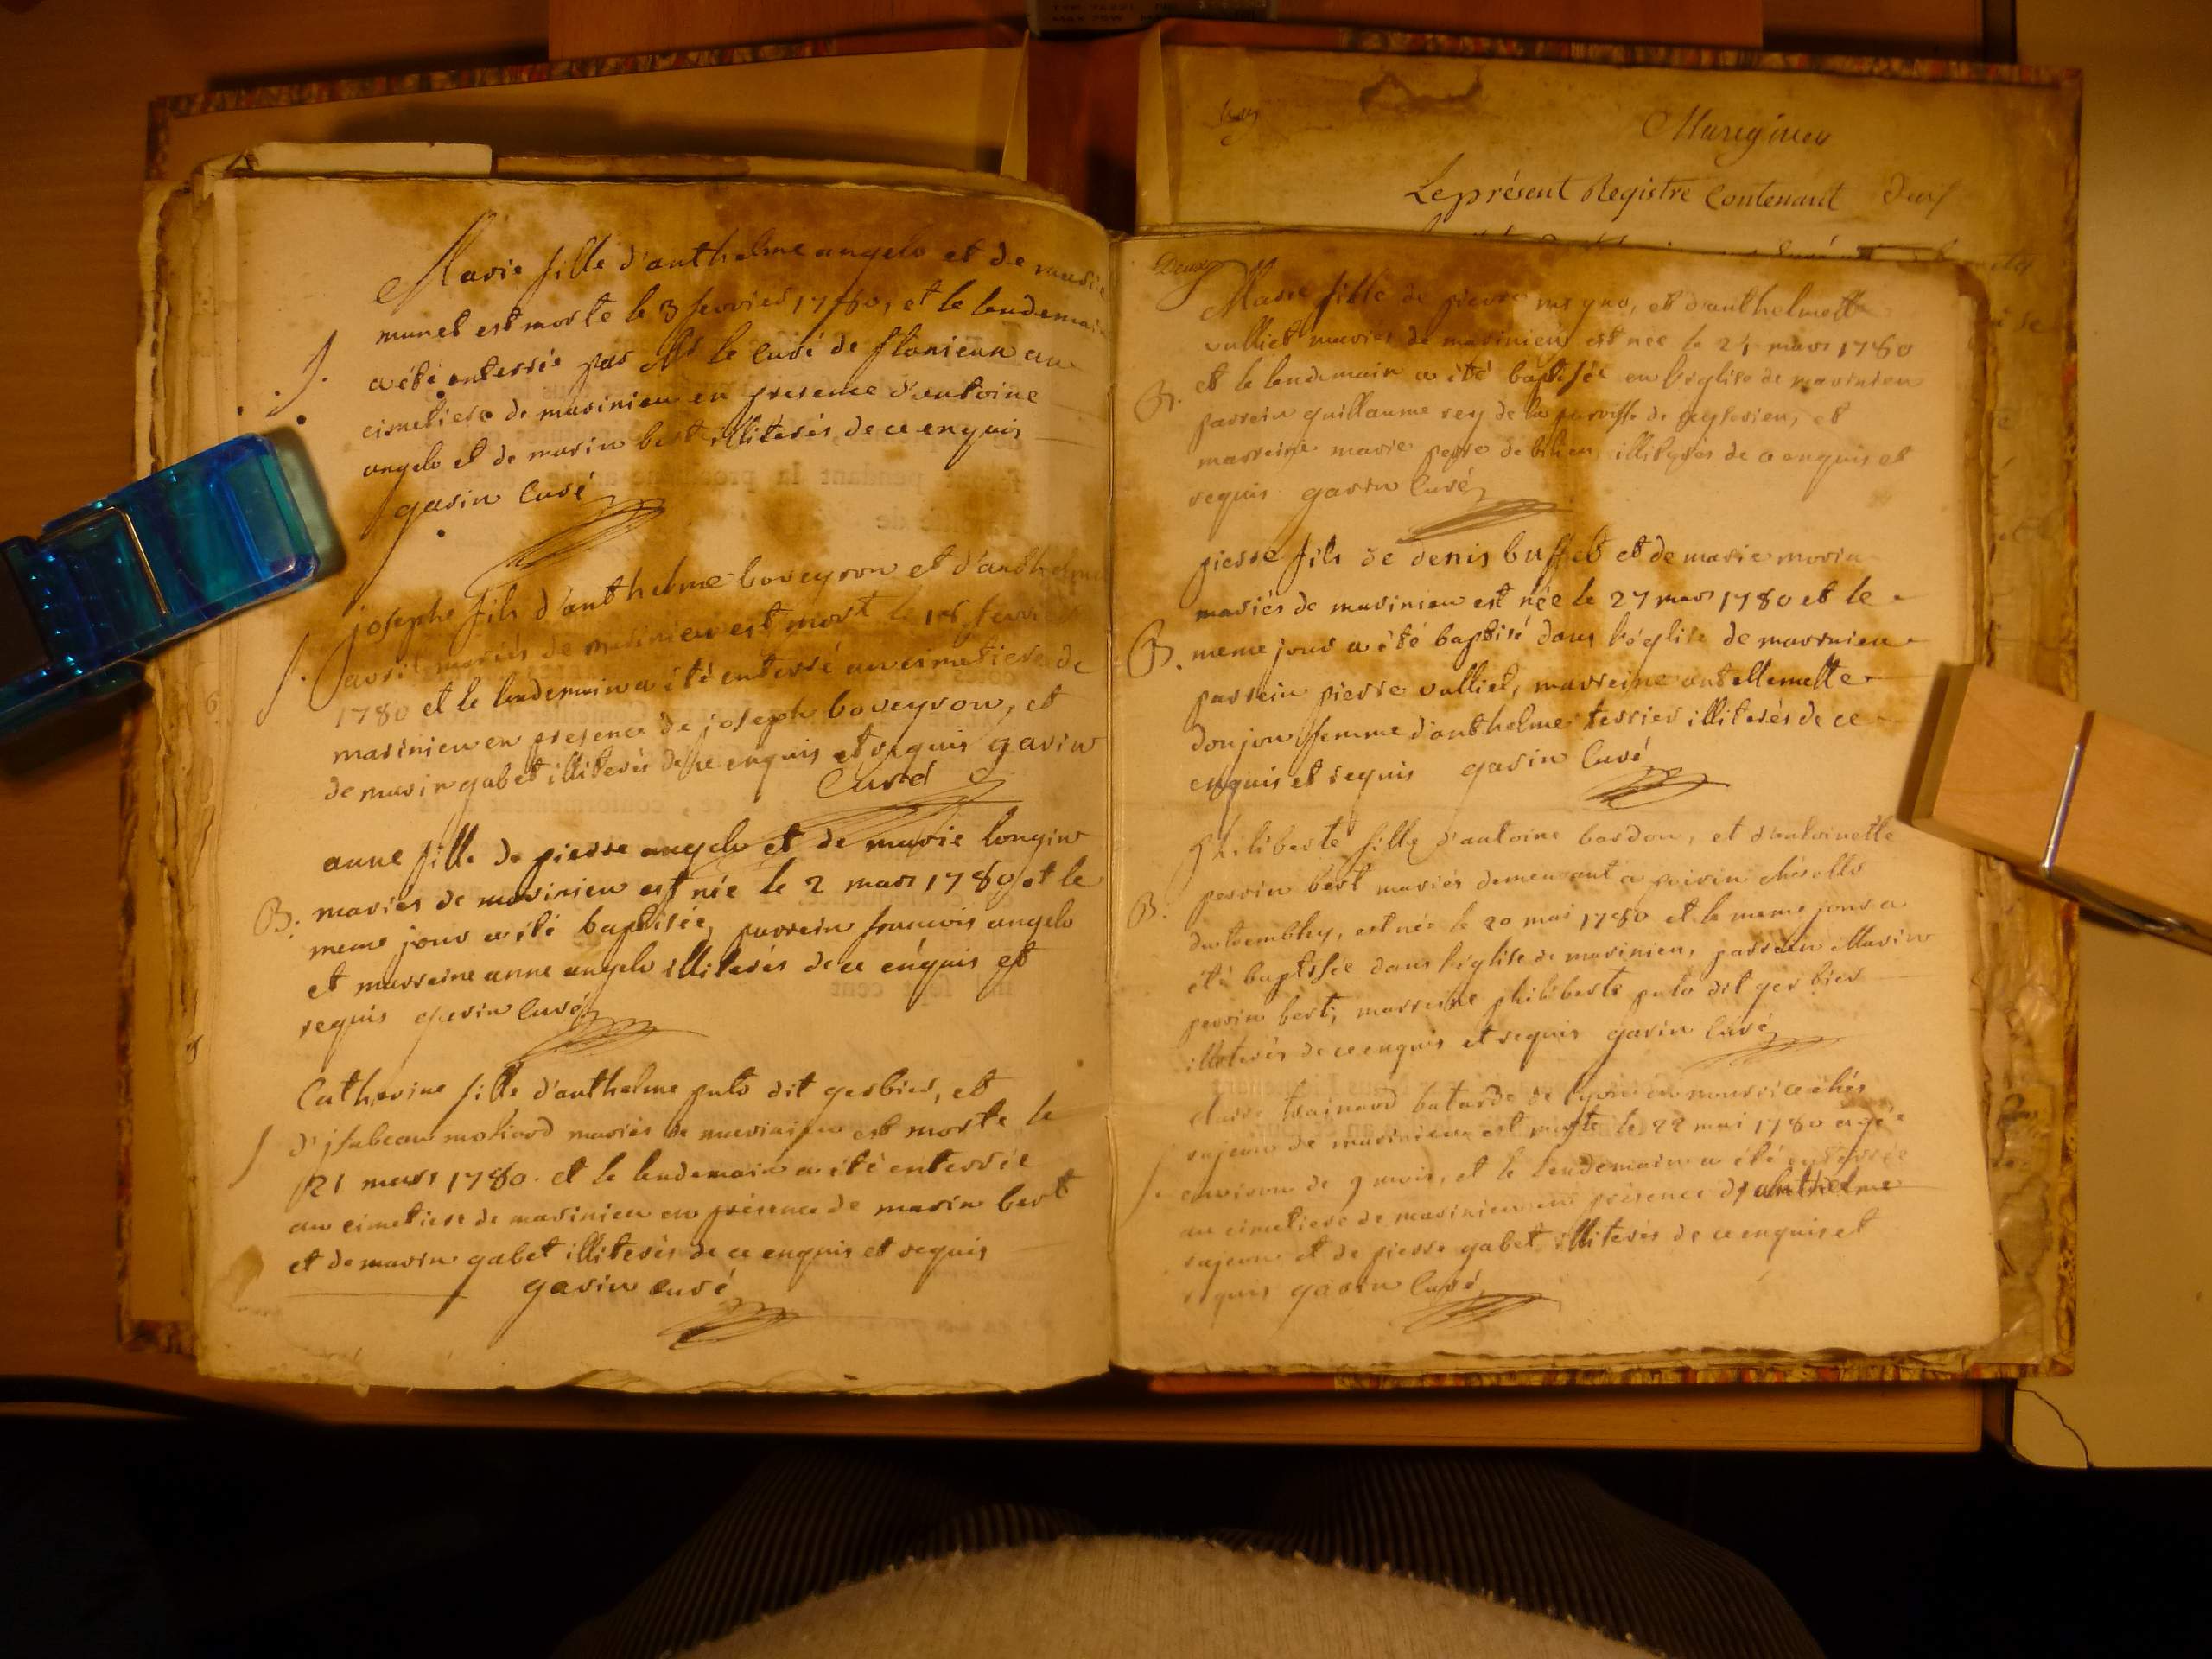 Marie fille d'anthelme angelo et de marie
munet est morte le 3 fevrier 1780, et le lendemain
S. a été enterrée par Mr le Curé de flanieun au
cimetiere de marinieu en presence d'antoine
angelo et de marin bert illiterés de ce enquis
gavin Curé
josephe fils d'anthelme boveyron et d'anthelme
S. mariés de marinieu est mort le fevr
1780 et le lendemain a été enterré au cimetiere de
marinieu en presence de joseph boveyron, et
de marin gabet illiterés de ce enquis et requis gavin
Curé
anne fille de pierre angelo et de marie longin
B. mariés de marinieu est née le 2 mars 1780 et le
meme jour a été baptisée, parrein francois angelo
et marreine anne angelo illiterés de ce enquis et
requis gavin Curé
Catherine fille d'anthelme puto dit gerbier, et
S d'jsabeau mariés de marinieu est morte le
21 mars 1780. et le lendemain a été enterrée
au cimetiere de marinieu en présence de marin bert
et de marin gabet illiterés de ce enquis et requis
gavin curé
Leprésent Registre Contenant Deux
Deux
Marie fille de pierre et d'anthelmette
vulliet mariés de marinieu est née le 24 mars 1780
B. et le lendemain a été baptisée en l'église de marinieu
parrein guillaume rey de la paroisse de et
marreine marie illiterés de ce enquis et
requis gavin Curé
pierre fils de denis buffet et de marie
mariés de marinieu est née le 27 mars 1780 et le
B. meme jour a été baptisé dans l'église de marinieu
parrein pierre vulliet, marreine antellemette
donjon femme d'anthelme terrier illiterés de ce
enquis et requis gavin Curé
philiberte fille d'antoine bordon, et d'antoinette
B. perrin bert mariés demeurant a
est née le 20 mai 1780 et le meme jour a
été baptisée dans l'église de marinieu, parrein Marin
perrin bert, marreine philiberte puto dit gerbier
illiterés de ce enquis et requis gavin Curé
batarde de lyon en nourrice chés
rajeon de marinieu est morte le 22 mai 1780 agée
S. environ de 9 mois, et le lendemain a été enterrée
au cimetiere de marinieu en présence d'anthelme
rajeon et de pierre gabet illiterés de ce enquis et
requis gavin Curé